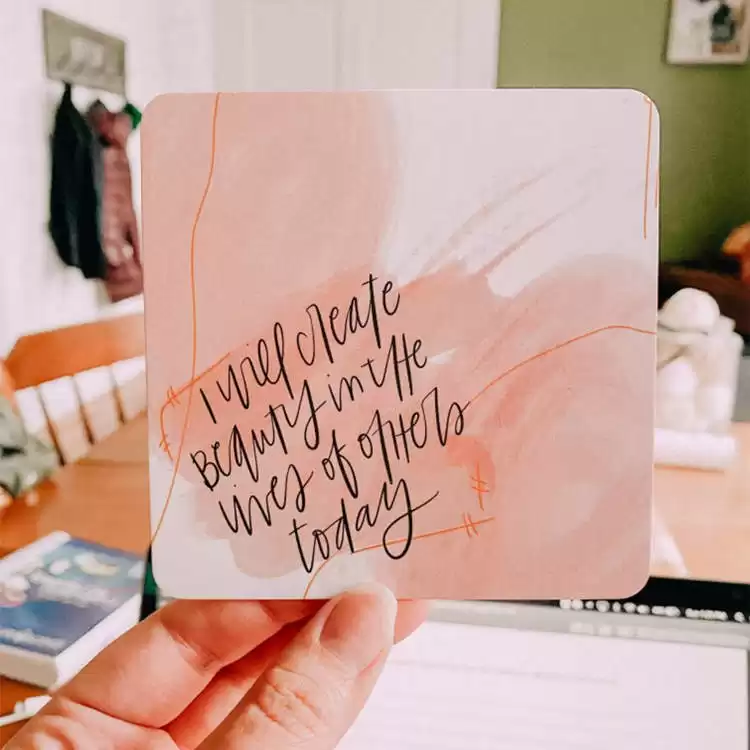 I will create
Beauty in the
lives of others
today